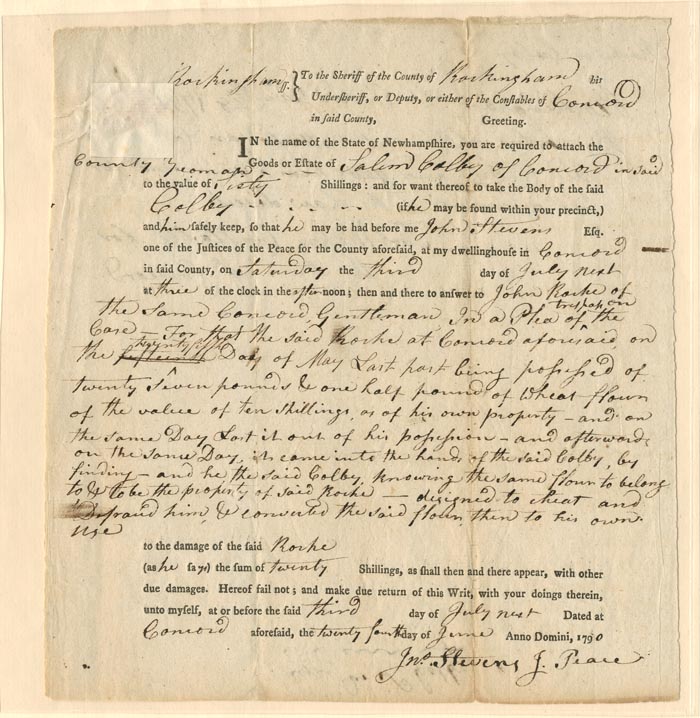 Rockingham ss. } To the Sheriff of the County of Rockingham his
Undersheriff, or Deputy, or either of the Constables of Concord
in said County, Greeting.
IN the name of the State of Newhampshire, you are required to attach the
Goods or Estate of Salem Colby of Concord in said
County Yeoman
to the value of Sixty Shillings: and for want thereof to take the Body of the said
Colby (if he may be found within your precinct,)
and him safely keep, so that he may be had before me John Stevens Esq.
one of the Justices of the Peace for the County aforesaid, at my dwellinghouse in Concord
in said County, on Saturday the third day of July next
at three of the clock in the afternoon; then and there to answer to John Roche of
the Same Concord, Gentleman, In a Plea of trespass on the
Case – For that the said Roche at Concord aforesaid, on
the fifteenth Day of May Last past being possessed of
twenty Seven pounds & one half pound of wheat flour
of the value of ten shillings, as of his own property – and on
the same Day Lost it out of his possession – and afterwards
on the same Day, it came into the hands of the said Colby, by
finding – and he the said Colby, knowing the same flour to belong
to & to be the property of said Roche – designed to cheat and
Defraud him, & converted the said flour, then to his own
use
to the damage of the said Roche
(as he says) the sum of twenty Shillings, as shall then and there appear, with other
due damages. Hereof fail not; and make due return of this Writ, with your doings therein,
unto myself, at or before the said third day of July next Dated at
Concord aforesaid, the twenty fourth day of June Anno Domini, 1790
Jno. Stevens J. Peace